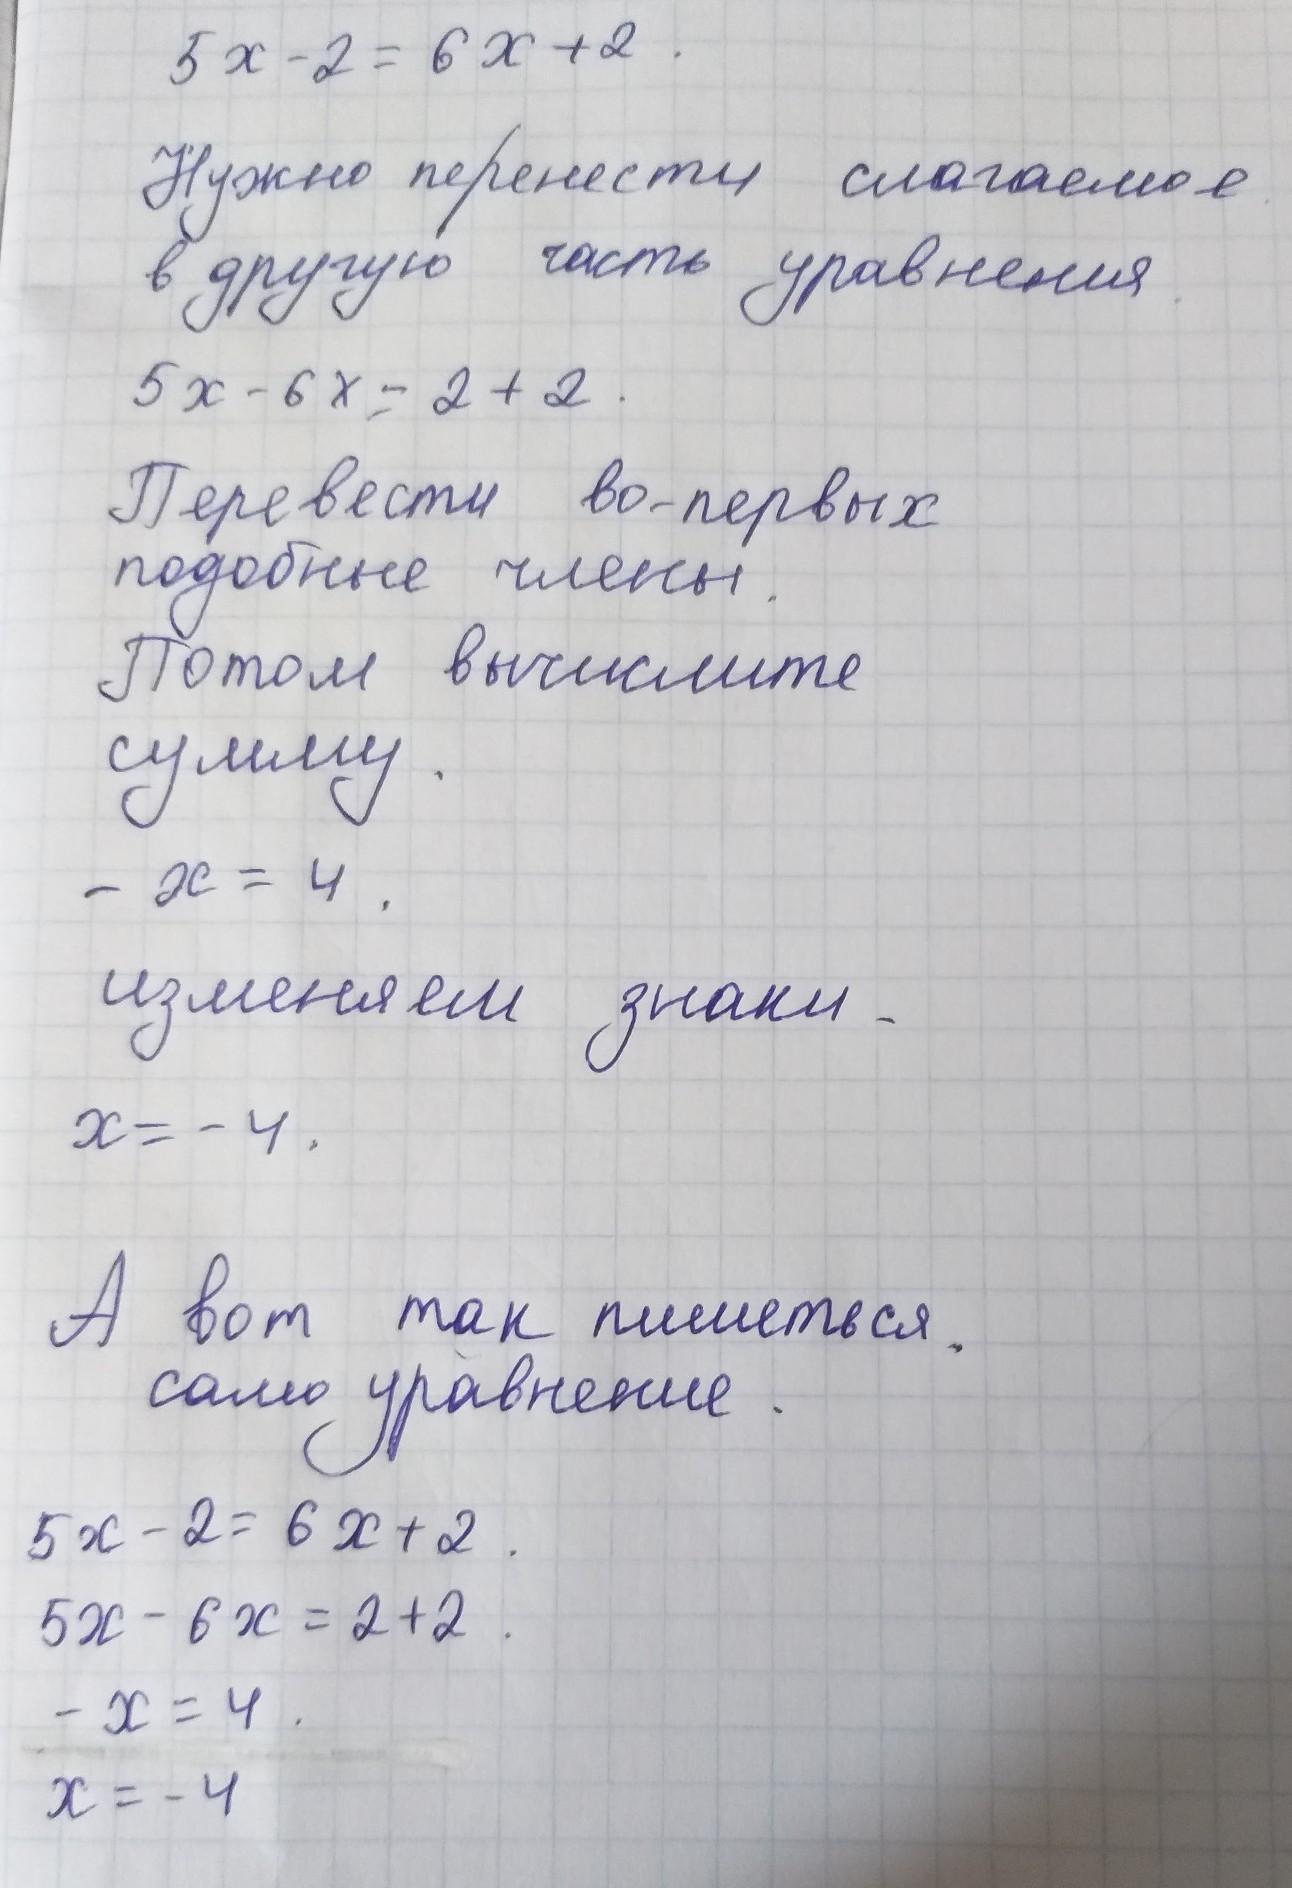 5x - 2 = 6x + 2.
Нужно перенести слагаемое
в другую часть уравнения.
5x - 6x = 2 + 2.
Перевести во-первых
подобные члены.
Потом вычислите
сумму.
- x = 4.
изменяем знаки.
x = - 4.
А вот так пишеться.
само уравнение.
5x - 2 = 6x + 2.
5x - 6x = 2 + 2.
- x = 4.
x = - 4